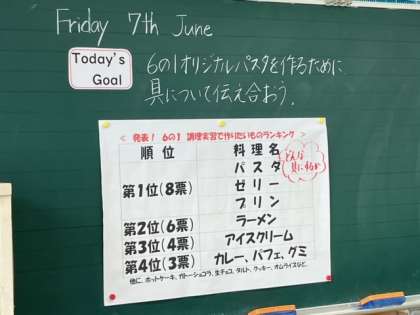 Friday 7th June
Today's
Goal
6の1オリジナルパスタを作るために
具について伝え合おう。
≪ 発表！ 6の1 調理実習で作りたいものランキング ≫
順位 料理名
どんな
具にするか
第1位(8票) パスタ
ゼリー
プリン
第2位(6票) ラーメン
第3位(4票) アイスクリーム
第4位(3票) カレー、パフェ、グミ
他に、ホットケーキ、ガトーショコラ、生チョコ、タルト、クッキー、オムライスなど。